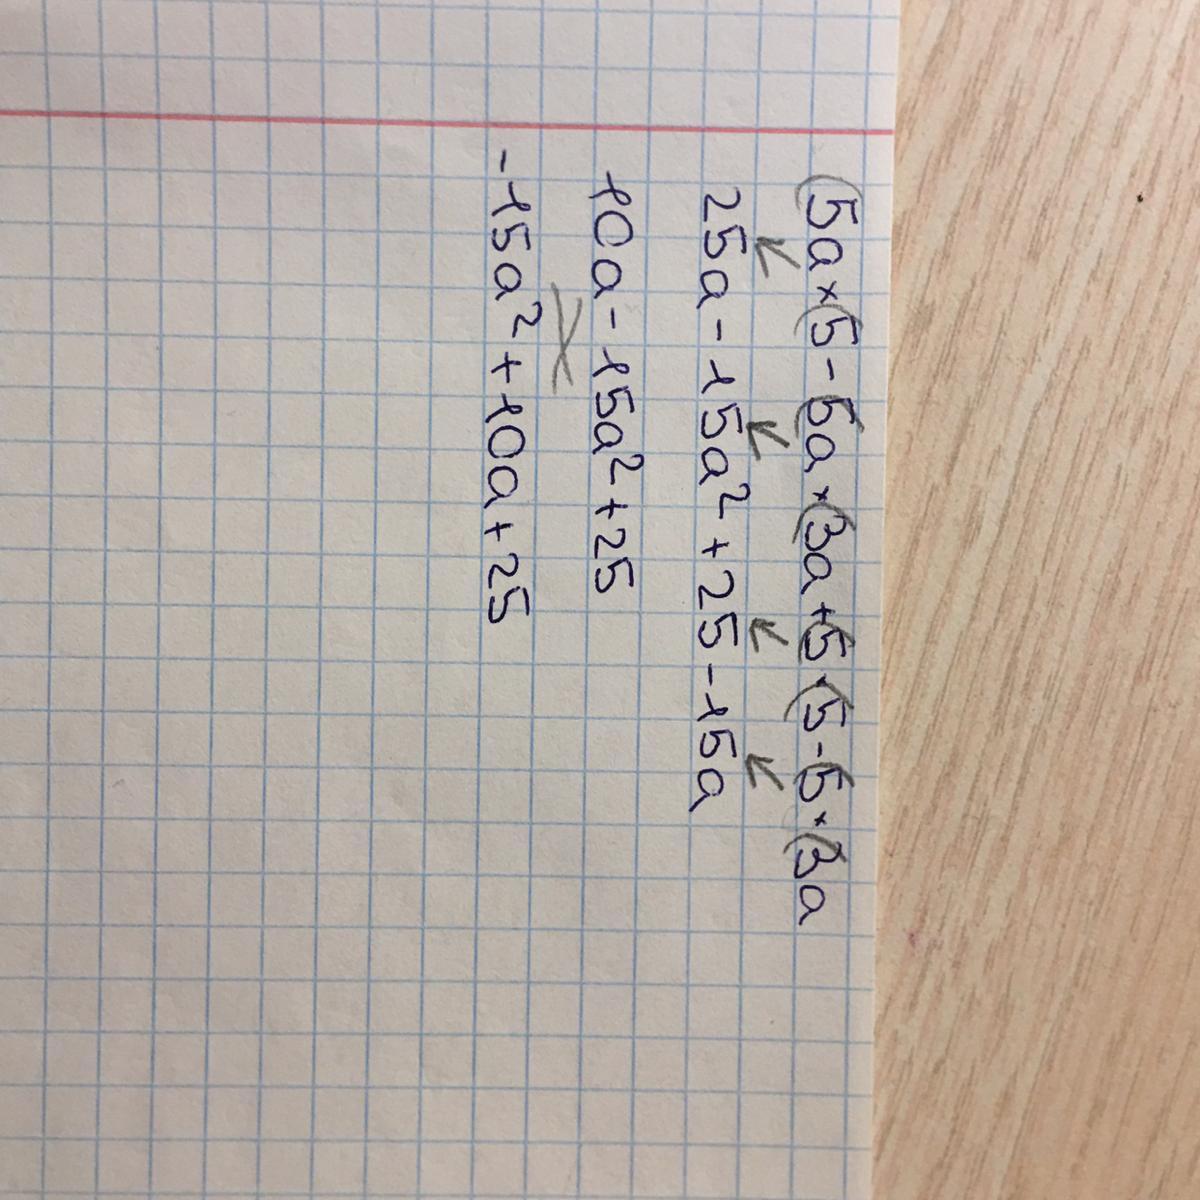 5a × 5 - 5a × 3a + 5 · 5 - 5 × 3a
25a - 15a² + 25 - 15a
10a - 15a² + 25
-15a² + 10a + 25